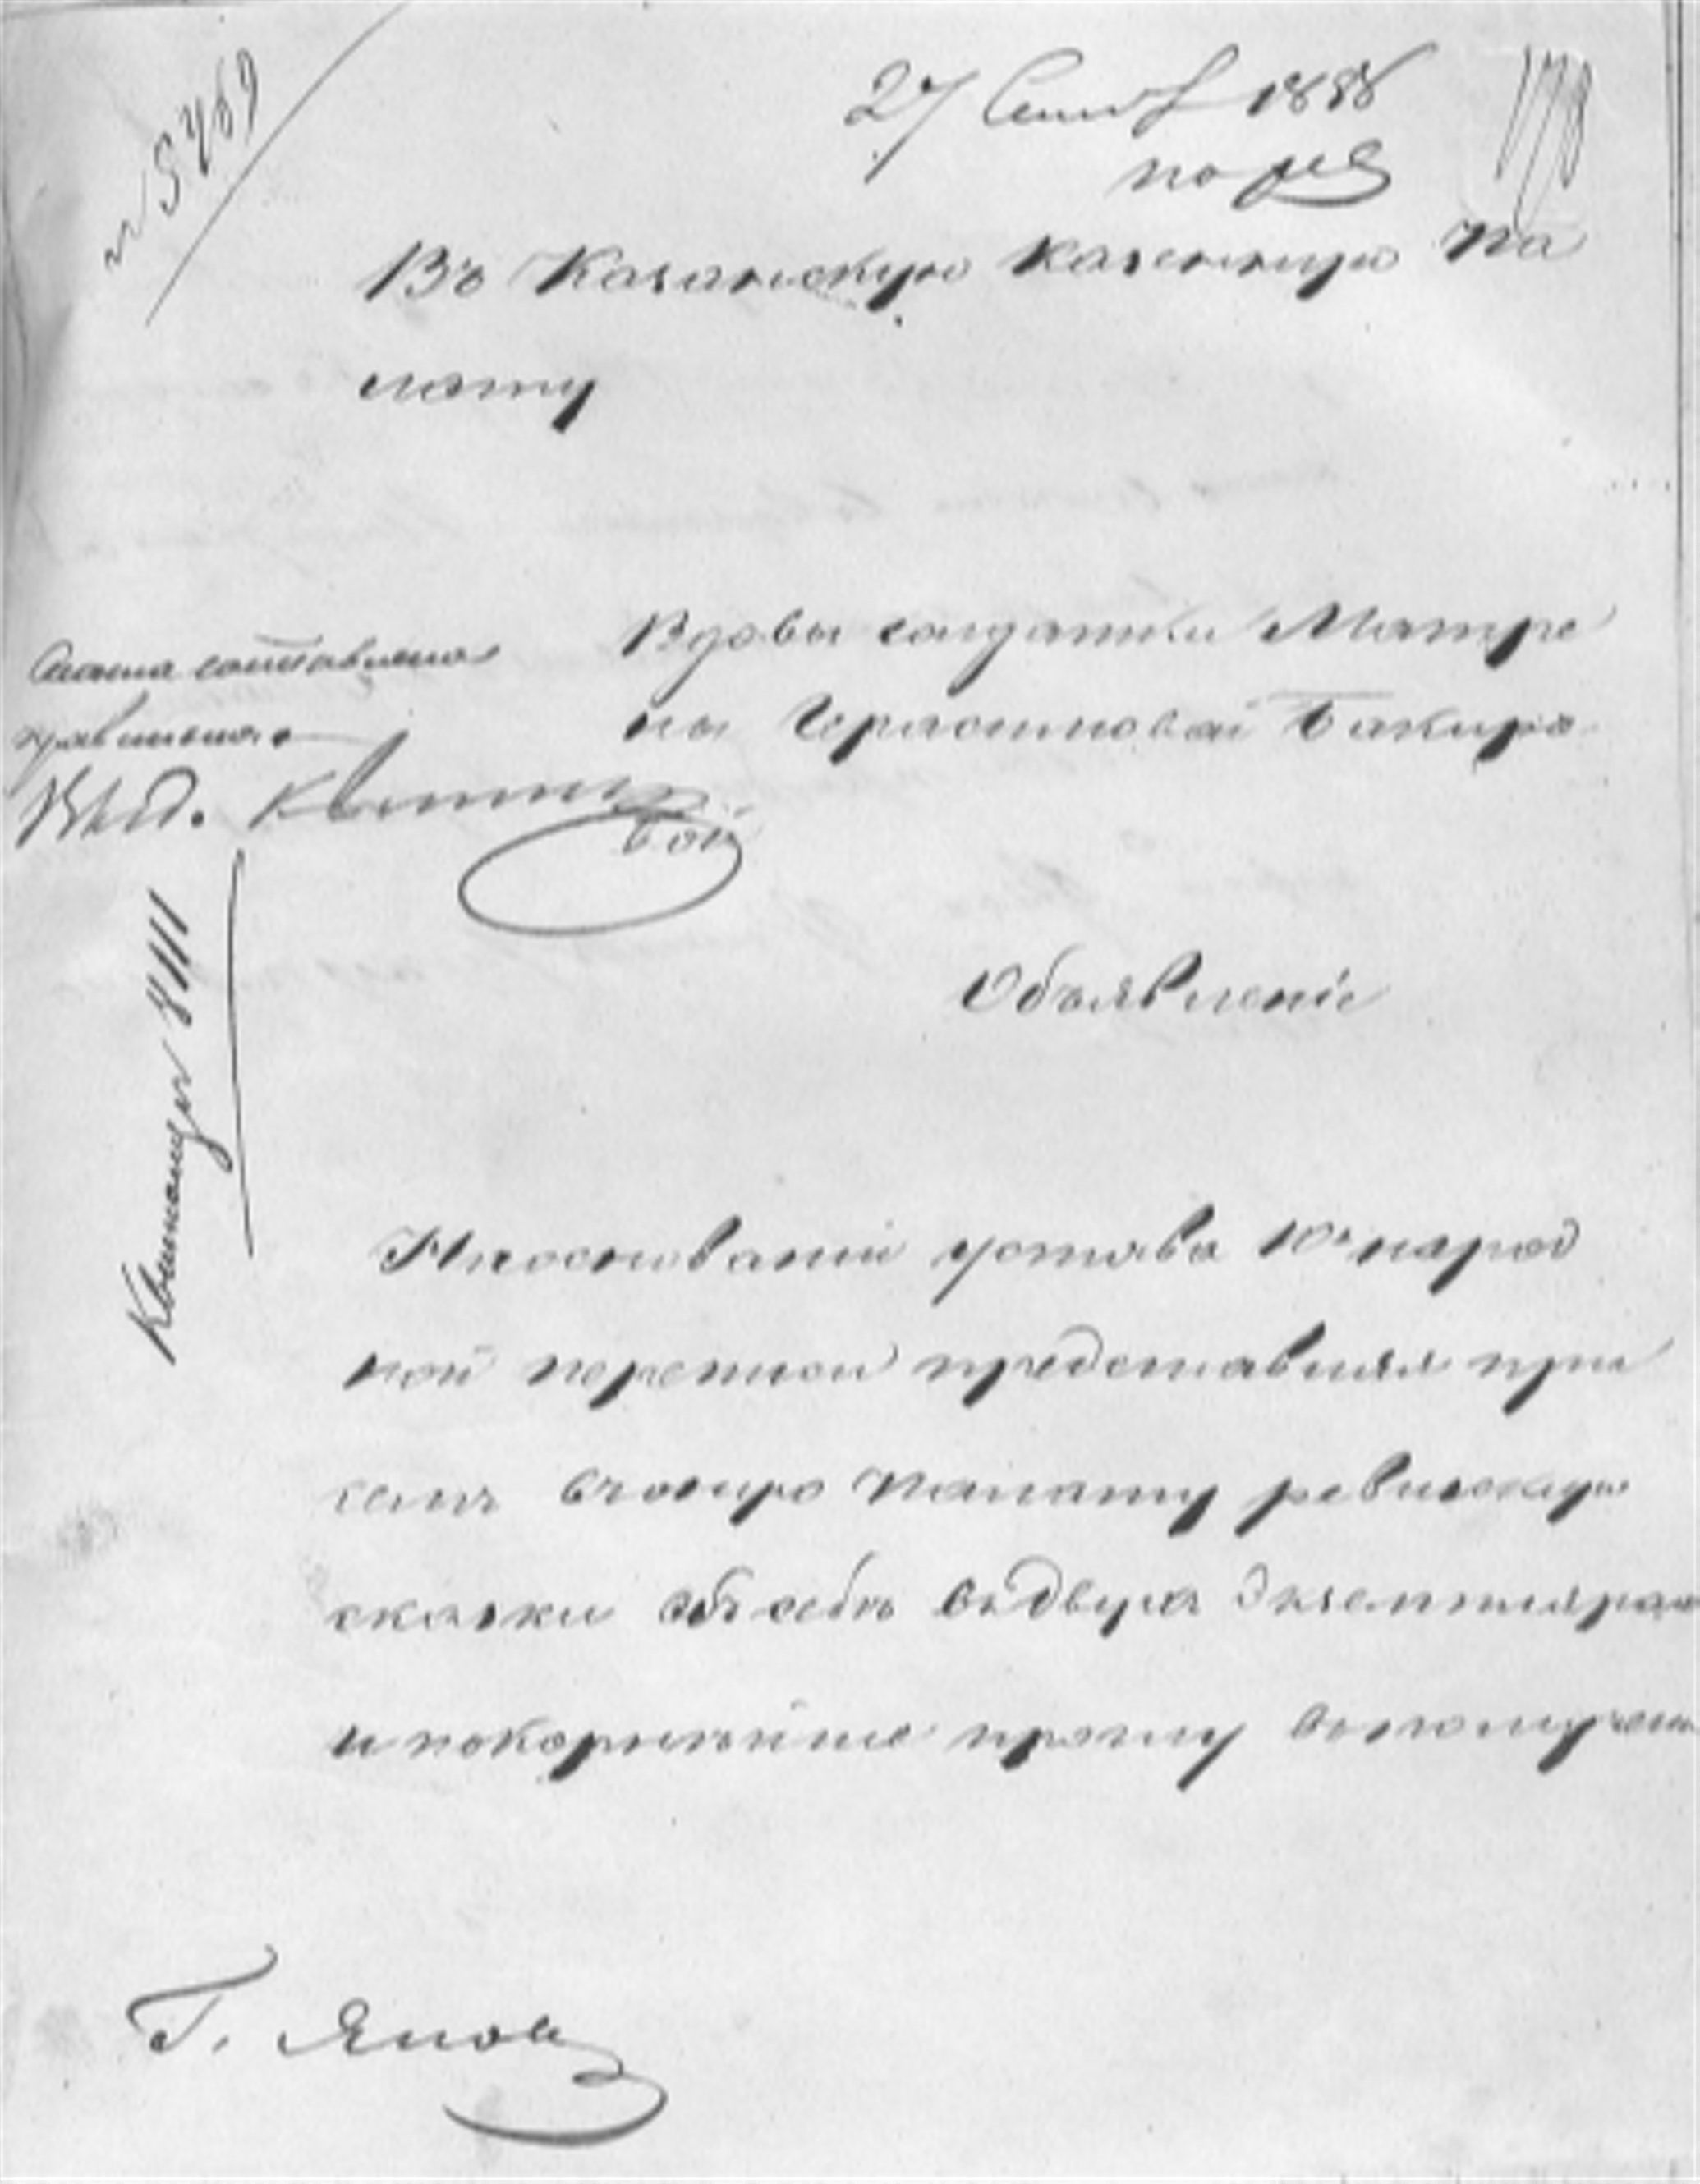 27 Сент 1858
по рев
178
№ 5469
Въ Казанскую Казенную Па
лату
Вдовы солдатки Матре
ны Герасимовой Бакиро
вой
Сказка составлена
правильно.
Объявленіе
Квитанція 8111
На основаніи устава 10й народ
ной переписи представляя при
семъ въ оную Палату ревискую
сказки объ себѣ въ двухъ Экземплярахъ
и покорнѣйше прошу въ получении
Г. Янов